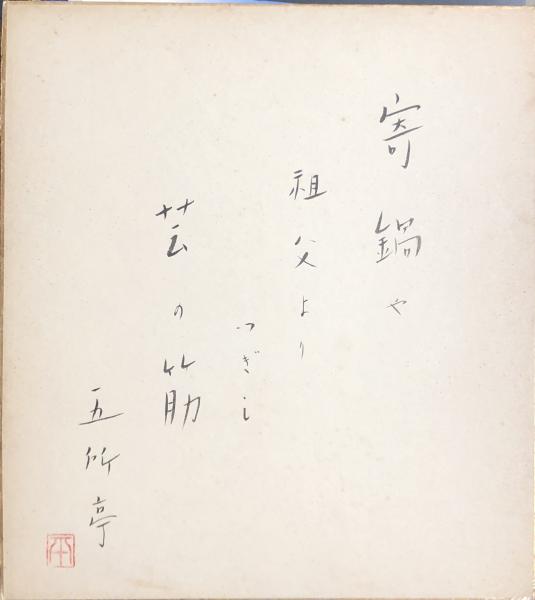 寄鍋や
祖父より
つぎし
芸の筋
五所亭